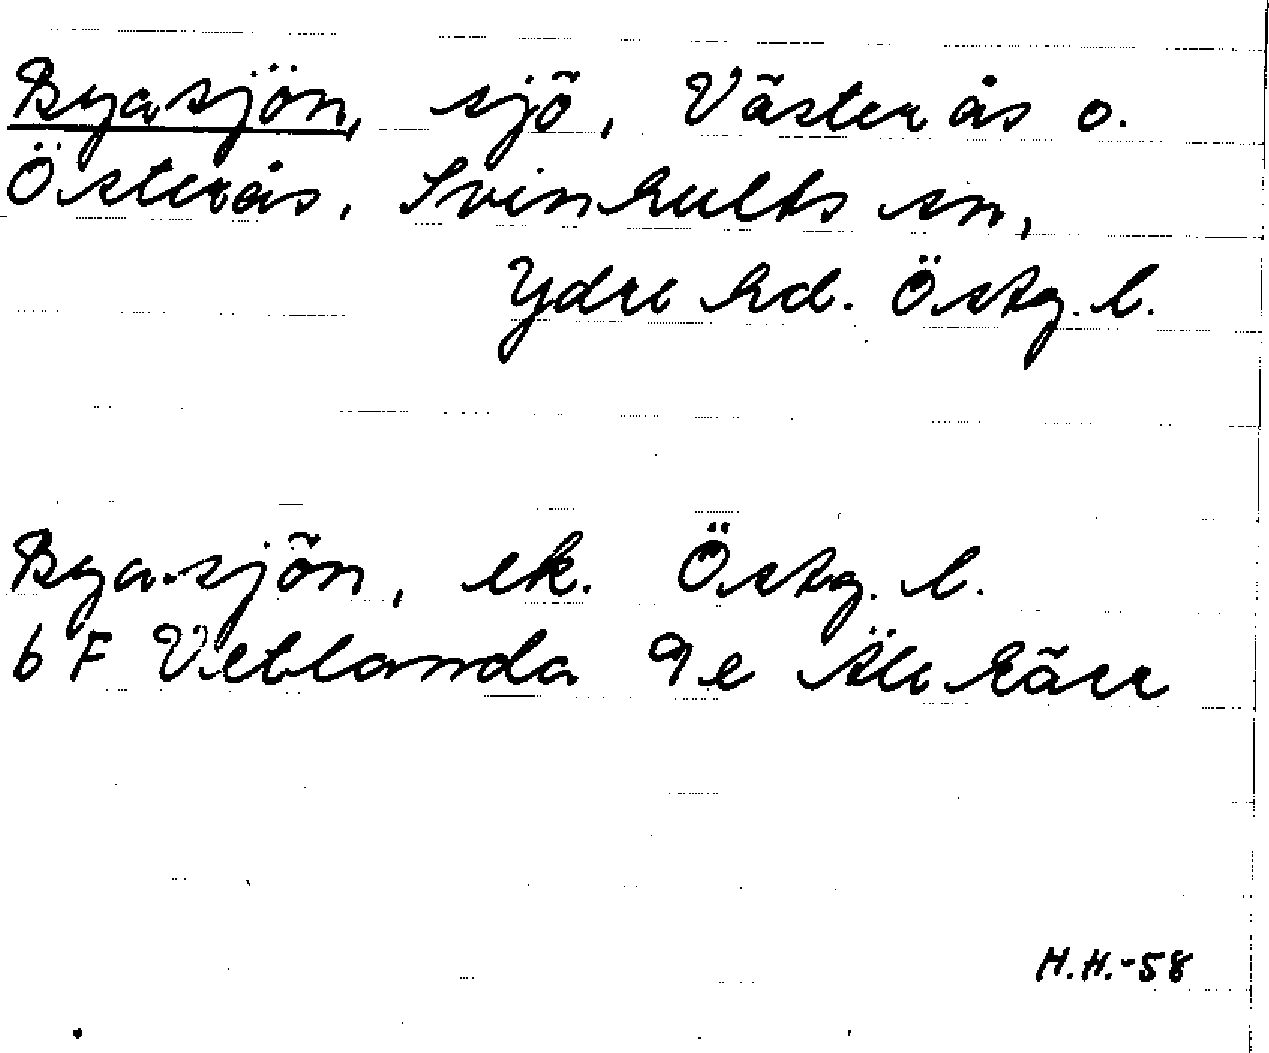 Byasjön, sjö, Västerås o.
Österås, Svinhults sn,
Ydre hd. Östg. l.
Byasjön, ek. Östg. l.
6 F Vetlanda 9 e Älekärr
H.H.-58